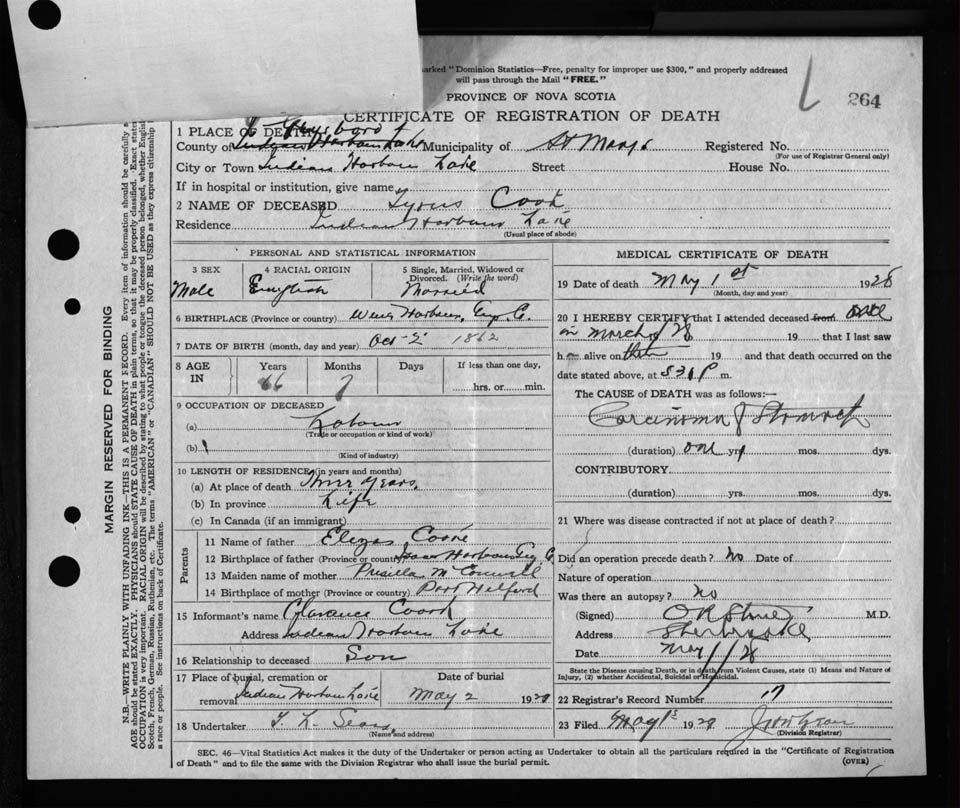 marked "Dominion Statistics—Free, penalty for improper use $300," and properly addressed
will pass through the Mail "FREE."
264
PROVINCE OF NOVA SCOTIA
CERTIFICATE OF REGISTRATION OF DEATH
1 PLACE OF DEATH
Guysboro
County of Indian Harbour Lake Municipality of St Marys Registered No.
(For use of Registrar General only)
City or Town Indian Harbour Lake Street House No.
If in hospital or institution, give name
2 NAME OF DECEASED Cook
Residence Indian Harbour Lake
(Usual place of abode)
PERSONAL AND STATISTICAL INFORMATION
3 SEX 4 RACIAL ORIGIN 5 Single, Married, Widowed or Divorced. (Write the word)
Male English Married
6 BIRTHPLACE (Province or country) Wine Harbour, Guy. Co.
7 DATE OF BIRTH (month, day and year) Oct 2 1862
8 AGE IN Years Months Days If less than one day,
66 7 hrs. or min.
9 OCCUPATION OF DECEASED
(a) Labour
(Trade or occupation or kind of work)
(b)
(Kind of industry)
10 LENGTH OF RESIDENCE (in years and months)
(a) At place of death Three years.
(b) In province Life
(c) In Canada (if an immigrant)
Parents
11 Name of father
12 Birthplace of father (Province or country) Isaac Harbour Guy. C.
13 Maiden name of mother Priscilla McConnell
14 Birthplace of mother (Province or country) Port Hilford
15 Informant's name Clarence Cook
Address Indian Harbour Lake
16 Relationship to deceased Son
17 Place of burial, cremation or Date of burial
removal Indian Harbour Lake May 2 1928
18 Undertaker
(Name and address)
MEDICAL CERTIFICATE OF DEATH
19 Date of death May 1st 1928
(Month, day and year)
20 I HEREBY CERTIFY that I attended deceased from once
in March /28 19 that I last saw
h alive on then 19 and that death occurred on
date stated above, at m.
The CAUSE of DEATH was as follows:—
Carcinoma of Stomach
(duration) one yrs mos. dys.
CONTRIBUTORY.
(duration) yrs. mos. dys.
21 Where was disease contracted if not at place of death?
Did an operation precede death? No Date of
Nature of operation
Was there an autopsy? No
(Signed) M.D.
Address Sherbrooke
Date May 1/28
State the Disease causing Death, or in death from Violent Causes, state (1) Means and Nature of
Injury, (2) whether Accidental, Suicidal or Homicidal.
22 Registrar's Record Number 17
23 Filed May 1st 1928
(Division Registrar)
SEC. 46—Vital Statistics Act makes it the duty of the Undertaker or person acting as Undertaker to obtain all the particulars required in the "Certificate of Registration
of Death" and to file the same with the Division Registrar who shall issue the burial permit.
(OVER)
MARGIN RESERVED FOR BINDING
N.B.—WRITE PLAINLY WITH UNFADING INK—THIS IS A PERMANENT RECORD. Every item of information should be carefully
AGE should be stated EXACTLY. PHYSICIANS should STATE CAUSE OF DEATH in plain terms, so that it may be properly classified. Exact
OCCUPATION is very important. RACIAL ORIGIN will be described by stating to what people or tongue the deceased person belonged, whether English
Scotch, French, German, Russian, Ruthenian, etc. The terms "AMERICAN" or "CANADIAN" SHOULD NOT BE USED as they express citizenship
a race or people. See instructions on back of Certificate.